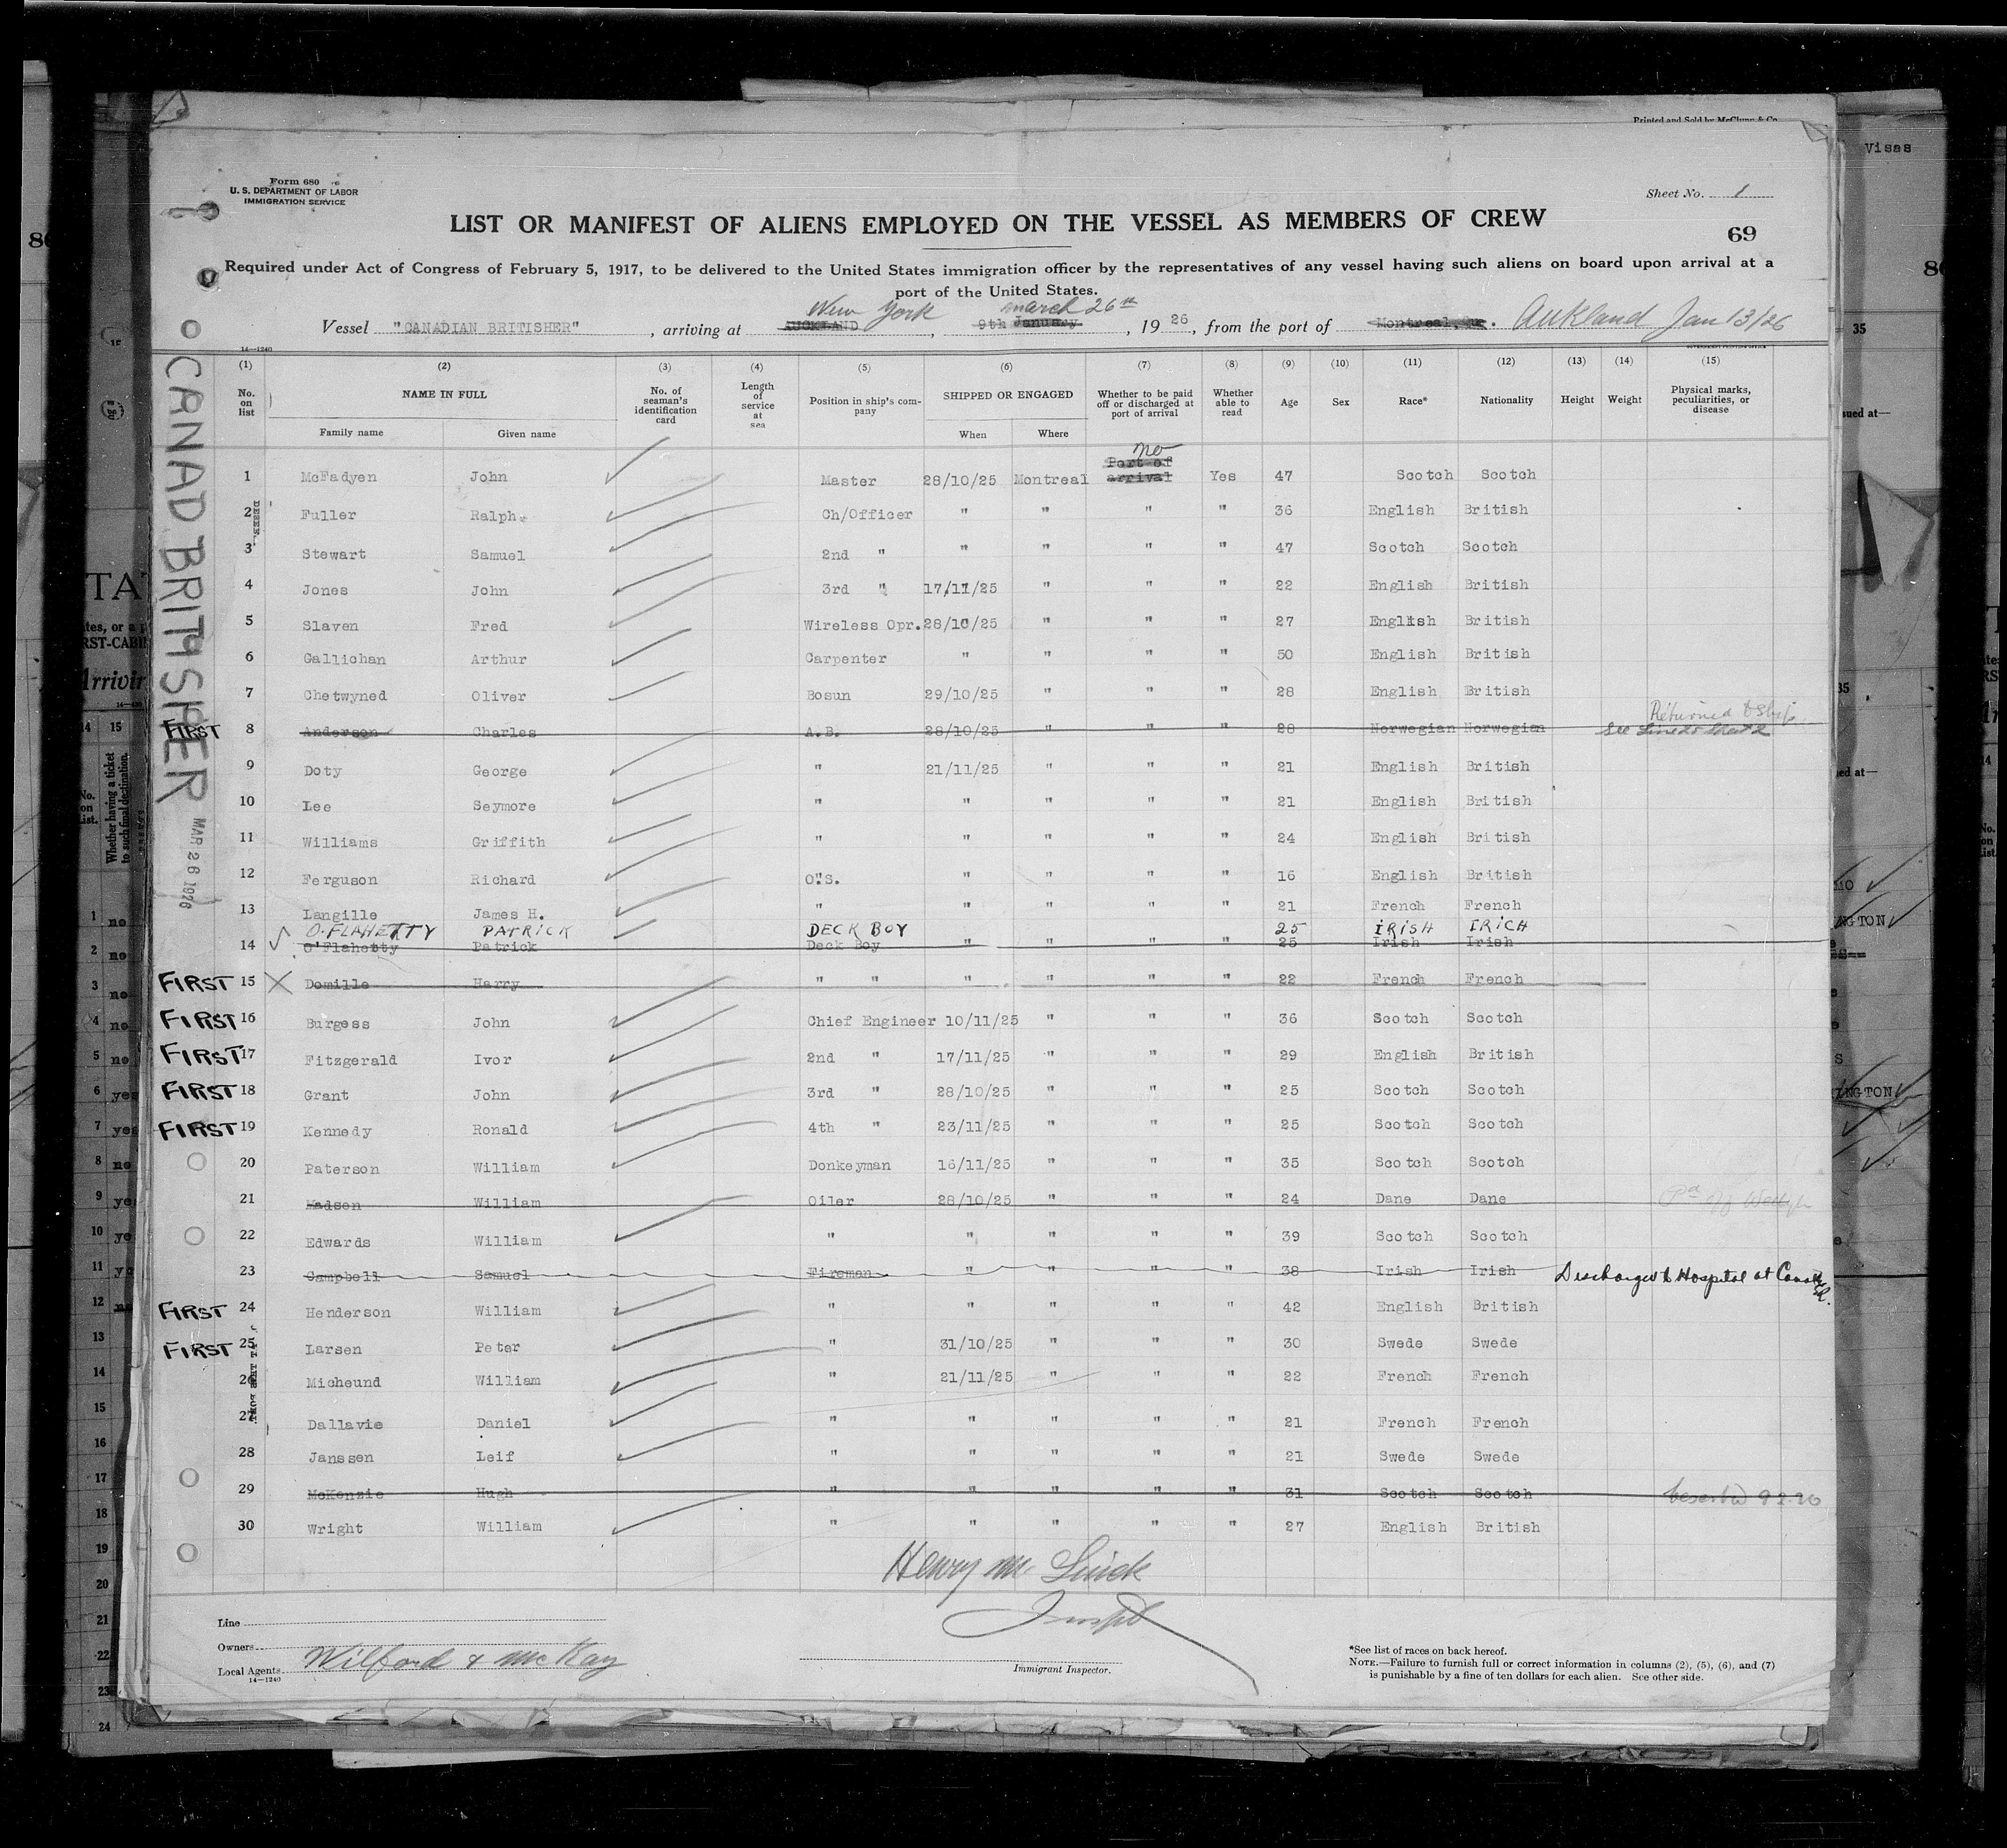 Printed and Sold by McClunn & Co.
Visas
Form 680
U. S. DEPARTMENT OF LABOR
IMMIGRATION SERVICE
Sheet No. 1
LIST OR MANIFEST OF ALIENS EMPLOYED ON THE VESSEL AS MEMBERS OF CREW
69
Required under Act of Congress of February 5, 1917, to be delivered to the United States immigration officer by the representatives of any vessel having such aliens on board upon arrival at a
port of the United States.
New York march 26th
Vessel "CANADIAN BRITISHER", arriving at AUCKLAND, 9th January, 1926, from the port of Montreal. Aukland Jan 13/26
14—1240
CANAD BRITISHER
MAR 26 1926
(1) (2) (3) (4) (5) (6) (7) (8) (9) (10) (11) (12) (13) (14) (15)
No. on list NAME IN FULL No. of seaman's identification card Length of service at sea Position in ship's company SHIPPED OR ENGAGED Whether to be paid off or discharged at port of arrival Whether able to read Age Sex Race* Nationality Height Weight Physical marks, peculiarities, or disease
Family name Given name When Where
no
1 McFadyen John Master 28/10/25 Montreal Port of arrival Yes 47 Scotch Scotch
2 Fuller Ralph Ch/Officer " " " " 36 English British
3 Stewart Samuel 2nd " " " " " 47 Scotch Scotch
4 Jones John 3rd " 17/11/25 " " " 22 English British
5 Slaven Fred Wireless Opr. 28/10/25 " " " 27 English British
6 Gallichan Arthur Carpenter " " " " 50 English British
7 Chetwyned Oliver Bosun 29/10/25 " " " 28 English British
Returned to Ship
FIRST 8 Anderson Charles A.B. 28/10/25 " " " 28 Norwegian Norwegian See Line
9 Doty George " 21/11/25 " " " 21 English British
10 Lee Seymore " " " " " 21 English British
11 Williams Griffith " " " " " 24 English British
12 Ferguson Richard O.S. " " " " 16 English British
13 Langille James H. " " " " " 21 French French
O.FLAHETTY PATRICK DECK BOY 25 IRISH IRICH
14 O'Flahetty Patrick Deck Boy " " " " 25 Irish Irish
FIRST 15 Domille Harry " " " " " " 22 French French
FIRST 16 Burgess John Chief Engineer 10/11/25 " " " 36 Scotch Scotch
FIRST 17 Fitzgerald Ivor 2nd " 17/11/25 " " " 29 English British
FIRST 18 Grant John 3rd " 28/10/25 " " " 25 Scotch Scotch
FIRST 19 Kennedy Ronald 4th " 23/11/25 " " " 25 Scotch Scotch
20 Paterson William Donkeyman 16/11/25 " " " 35 Scotch Scotch
21 Madsen William Oiler 28/10/25 " " " 24 Dane Dane
22 Edwards William " " " " " 39 Scotch Scotch
23 Campbell Samuel Fireman " " " " 38 Irish Irish Discharged to Hospital at
FIRST 24 Henderson William " " " " " 42 English British
FIRST 25 Larsen Peter " 31/10/25 " " " 30 Swede Swede
26 Micheund William " 21/11/25 " " " 22 French French
27 Dallavie Daniel " " " " " 21 French French
28 Janssen Leif " " " " " 21 Swede Swede
29 McKenzie Hugh " " " " " 31 Scotch Scotch
30 Wright William " " " " " 27 English British
Line
Owners
Local Agents Wilford & McKay
14—1240
Immigrant Inspector.
*See list of races on back hereof.
NOTE.—Failure to furnish full or correct information in columns (2), (5), (6), and (7)
is punishable by a fine of ten dollars for each alien. See other side.